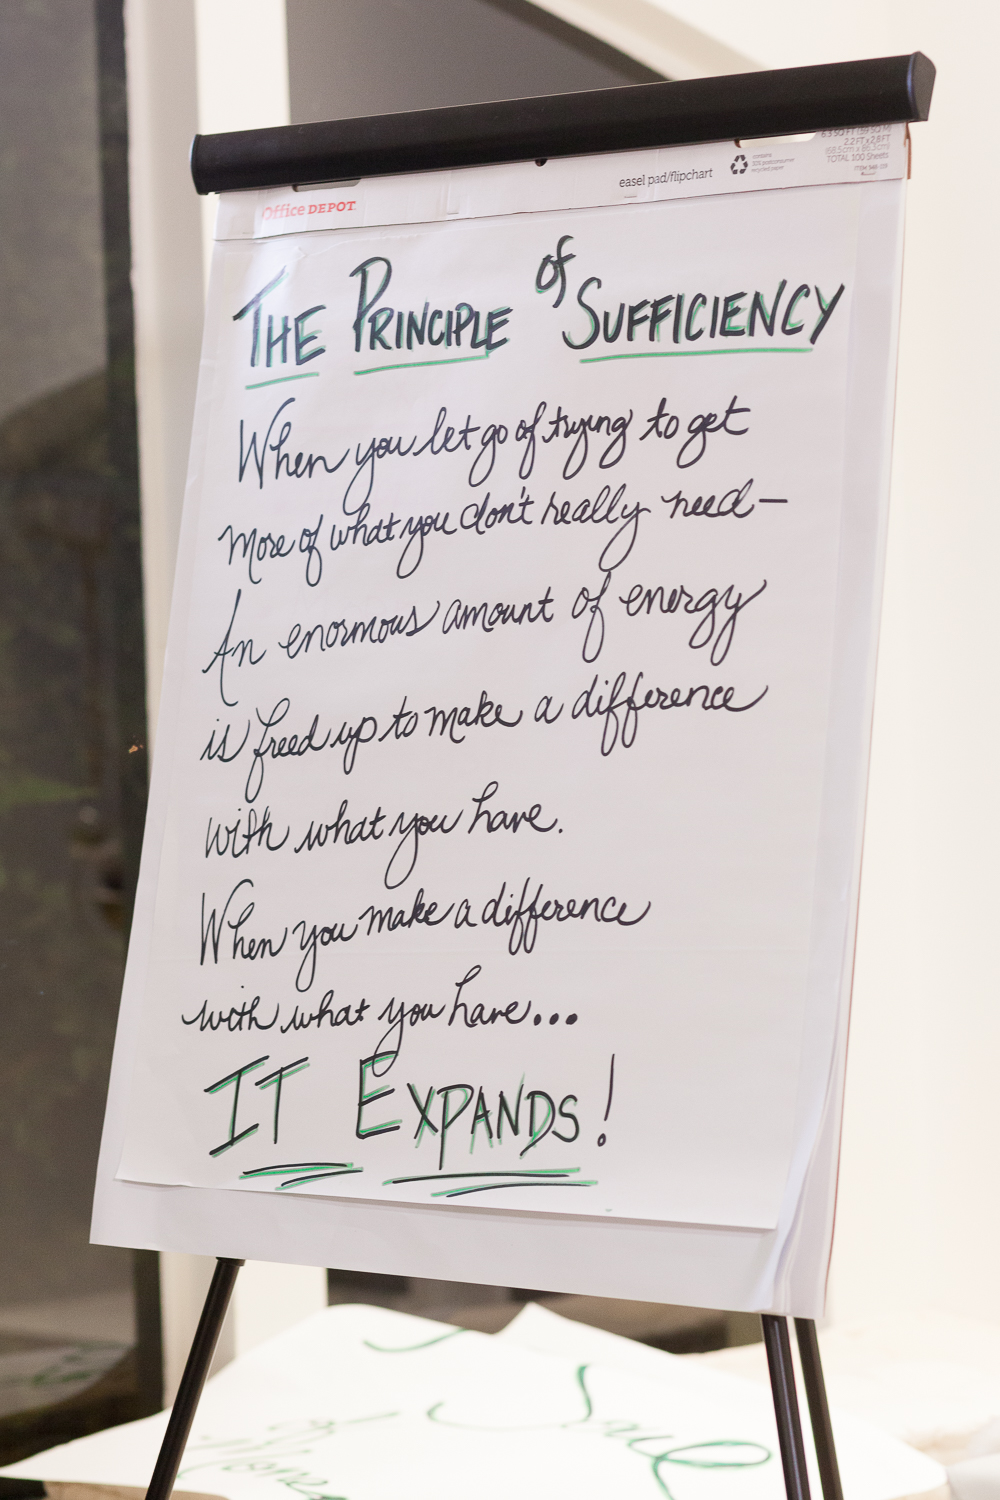 Office DEPOT.
easel pad/flipchart
contains
recycled paper
2.2 FT x 2.8 FT
TOTAL 100 Sheets
THE PRINCIPLE of SUFFICIENCY
When you let go of trying to get
more of what you don't really need—
An enormous amount of energy
is freed up to make a difference
with what you have.
When you make a difference
with what you have...
IT EXPANDS!
Soul
of Money